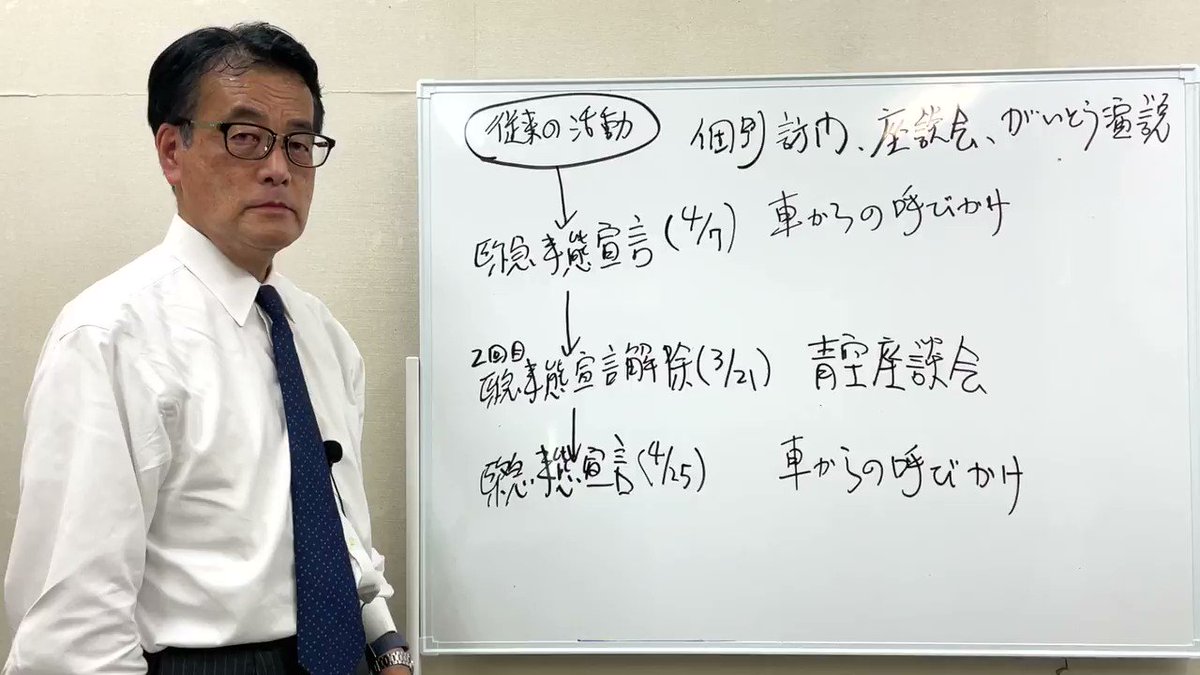 従来の活動 個別訪問、座談会、がいとう演説
緊急事態宣言(4/7) 車からの呼びかけ
2回目
緊急事態宣言解除(3/21) 青空座談会
緊急事態宣言(4/25) 車からの呼びかけ